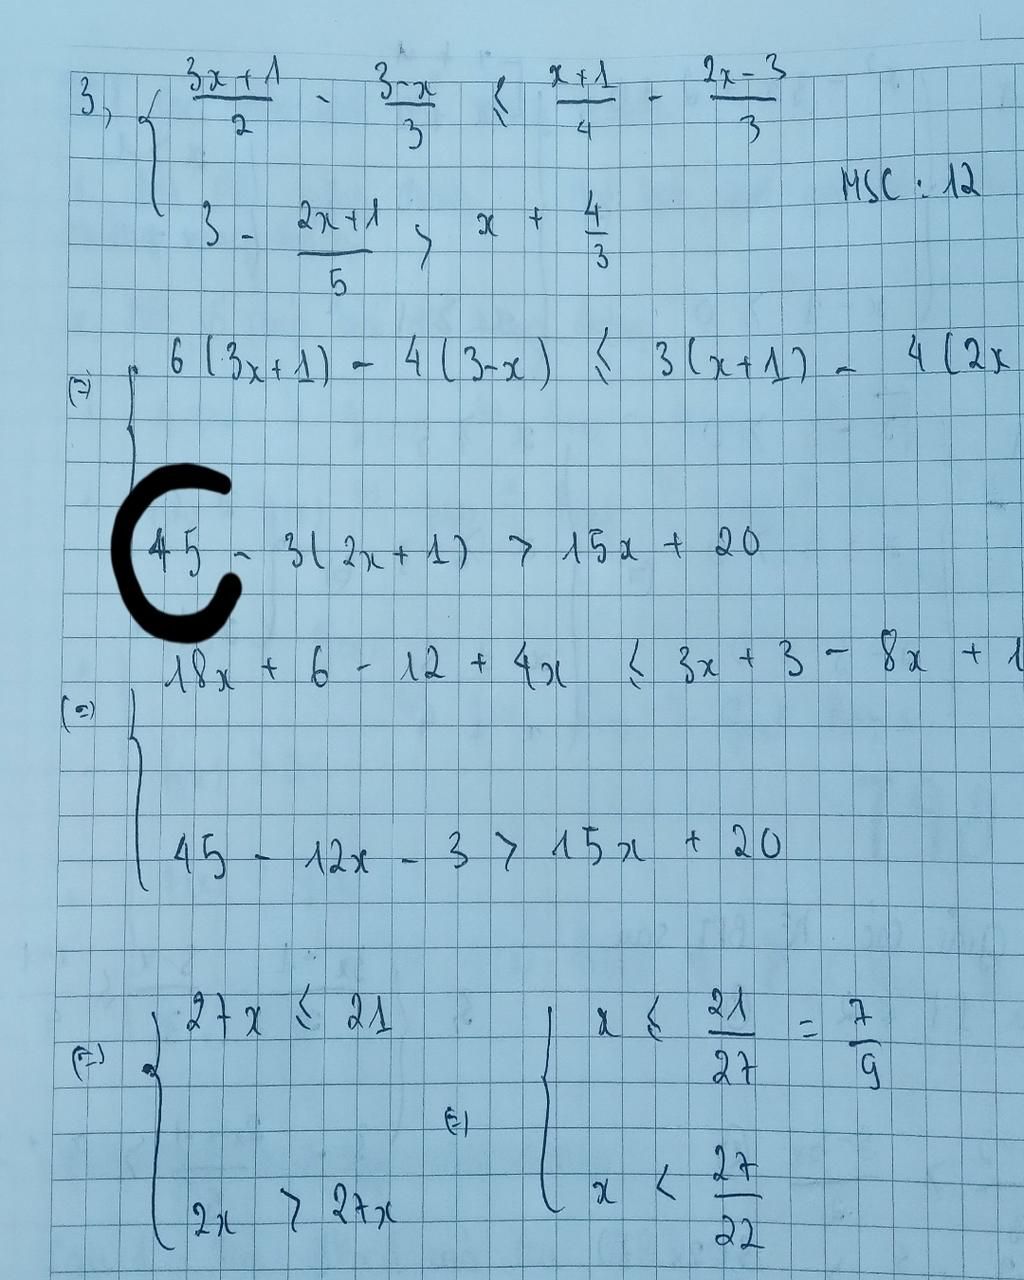 3, { (3x+1)/2 - (3-x)/3 ≤ (x+1)/4 - (2x-3)/3
MSC : 12
3 - (2x+1)/5 > x + 4/3
(=) { 6(3x+1) - 4(3-x) ≤ 3(x+1) - 4(2x
45 - 3(2x+1) > 15x + 20
(=) { 18x + 6 - 12 + 4x ≤ 3x + 3 - 8x + 1
45 - 12x - 3 > 15x + 20
(=) { 27x ≤ 21 (=) { x ≤ 21/27 = 7/9
2x > 27x x < 27/22